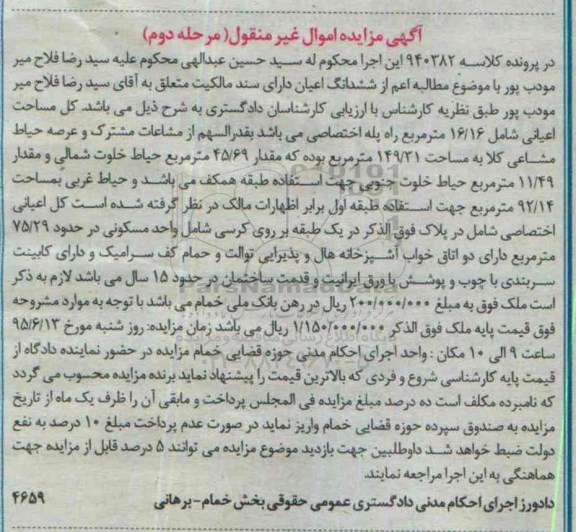 آگهی مزایده اموال غیر منقول( مرحله دوم)
در پرونده کلاسه ۹۴۰۳۸۲ این اجرا محکوم له سید حسین عبدالهی محکوم علیه سید رضا فلاح میر
مودب پور با موضوع مطالبه اعم از ششدانگ اعیان دارای سند مالکیت متعلق به آقای سید رضا فلاح میر
مودب پور طبق نظریه کارشناس با ارزیابی کارشناسان دادگستری به شرح ذیل می باشد. کل مساحت
اعیانی شامل ۱۶/۱۶ مترمربع راه پله اختصاصی می باشد بقدرالسهم از مشاعات مشترک و عرصه حیاط
مشاعی کلا به مساحت ۱۴۹/۳۱ مترمربع بوده که مقدار ۴۵/۶۹ مترمربع حیاط خلوت شمالی و مقدار
۱۱/۴۹ مترمربع حیاط خلوت جنوبی جهت استفاده طبقه همکف می باشد و حیاط غربی بمساحت
۹۲/۱۴ مترمربع جهت استفاده طبقه اول برابر اظهارات مالک در نظر گرفته شده است کل اعیانی
اختصاصی شامل در پلاک فوق الذکر در یک طبقه بر روی کرسی شامل واحد مسکونی در حدود ۷۵/۲۹
مترمربع دارای دو اتاق خواب آشپزخانه هال و پذیرایی توالت و حمام کف سرامیک و دارای کابینت
سربندی با چوب و پوشش با ورق ایرانیت و قدمت ساختمان در حدود ۱۵ سال می باشد لازم به ذکر
است ملک فوق به مبلغ ۲۰۰/۰۰۰/۰۰۰ ریال در رهن بانک ملی خمام می باشد با توجه به موارد مشروحه
فوق قیمت پایه ملک فوق الذکر ۱/۱۵۰/۰۰۰/۰۰۰ ریال می باشد زمان مزایده: روز شنبه مورخ ۹۵/۶/۱۳
ساعت ۹ الی ۱۰ مکان : واحد اجرای احکام مدنی حوزه قضایی خمام مزایده در حضور نماینده دادگاه از
قیمت پایه کارشناسی شروع و فردی که بالاترین قیمت را پیشنهاد نماید برنده مزایده محسوب می گردد
که نامبرده مکلف است ده درصد مبلغ مزایده فی المجلس پرداخت و مابقی آن را ظرف یک ماه از تاریخ
مزایده به صندوق سپرده حوزه قضایی خمام واریز نماید در صورت عدم پرداخت مبلغ ۱۰ درصد به نفع
دولت ضبط خواهد شد داوطلبین جهت بازدید موضوع مزایده می توانند ۵ درصد قابل از مزایده جهت
هماهنگی به این اجرا مراجعه نمایند.
دادورز اجرای احکام مدنی دادگستری عمومی حقوقی بخش خمام-برهانی ۴۶۵۹